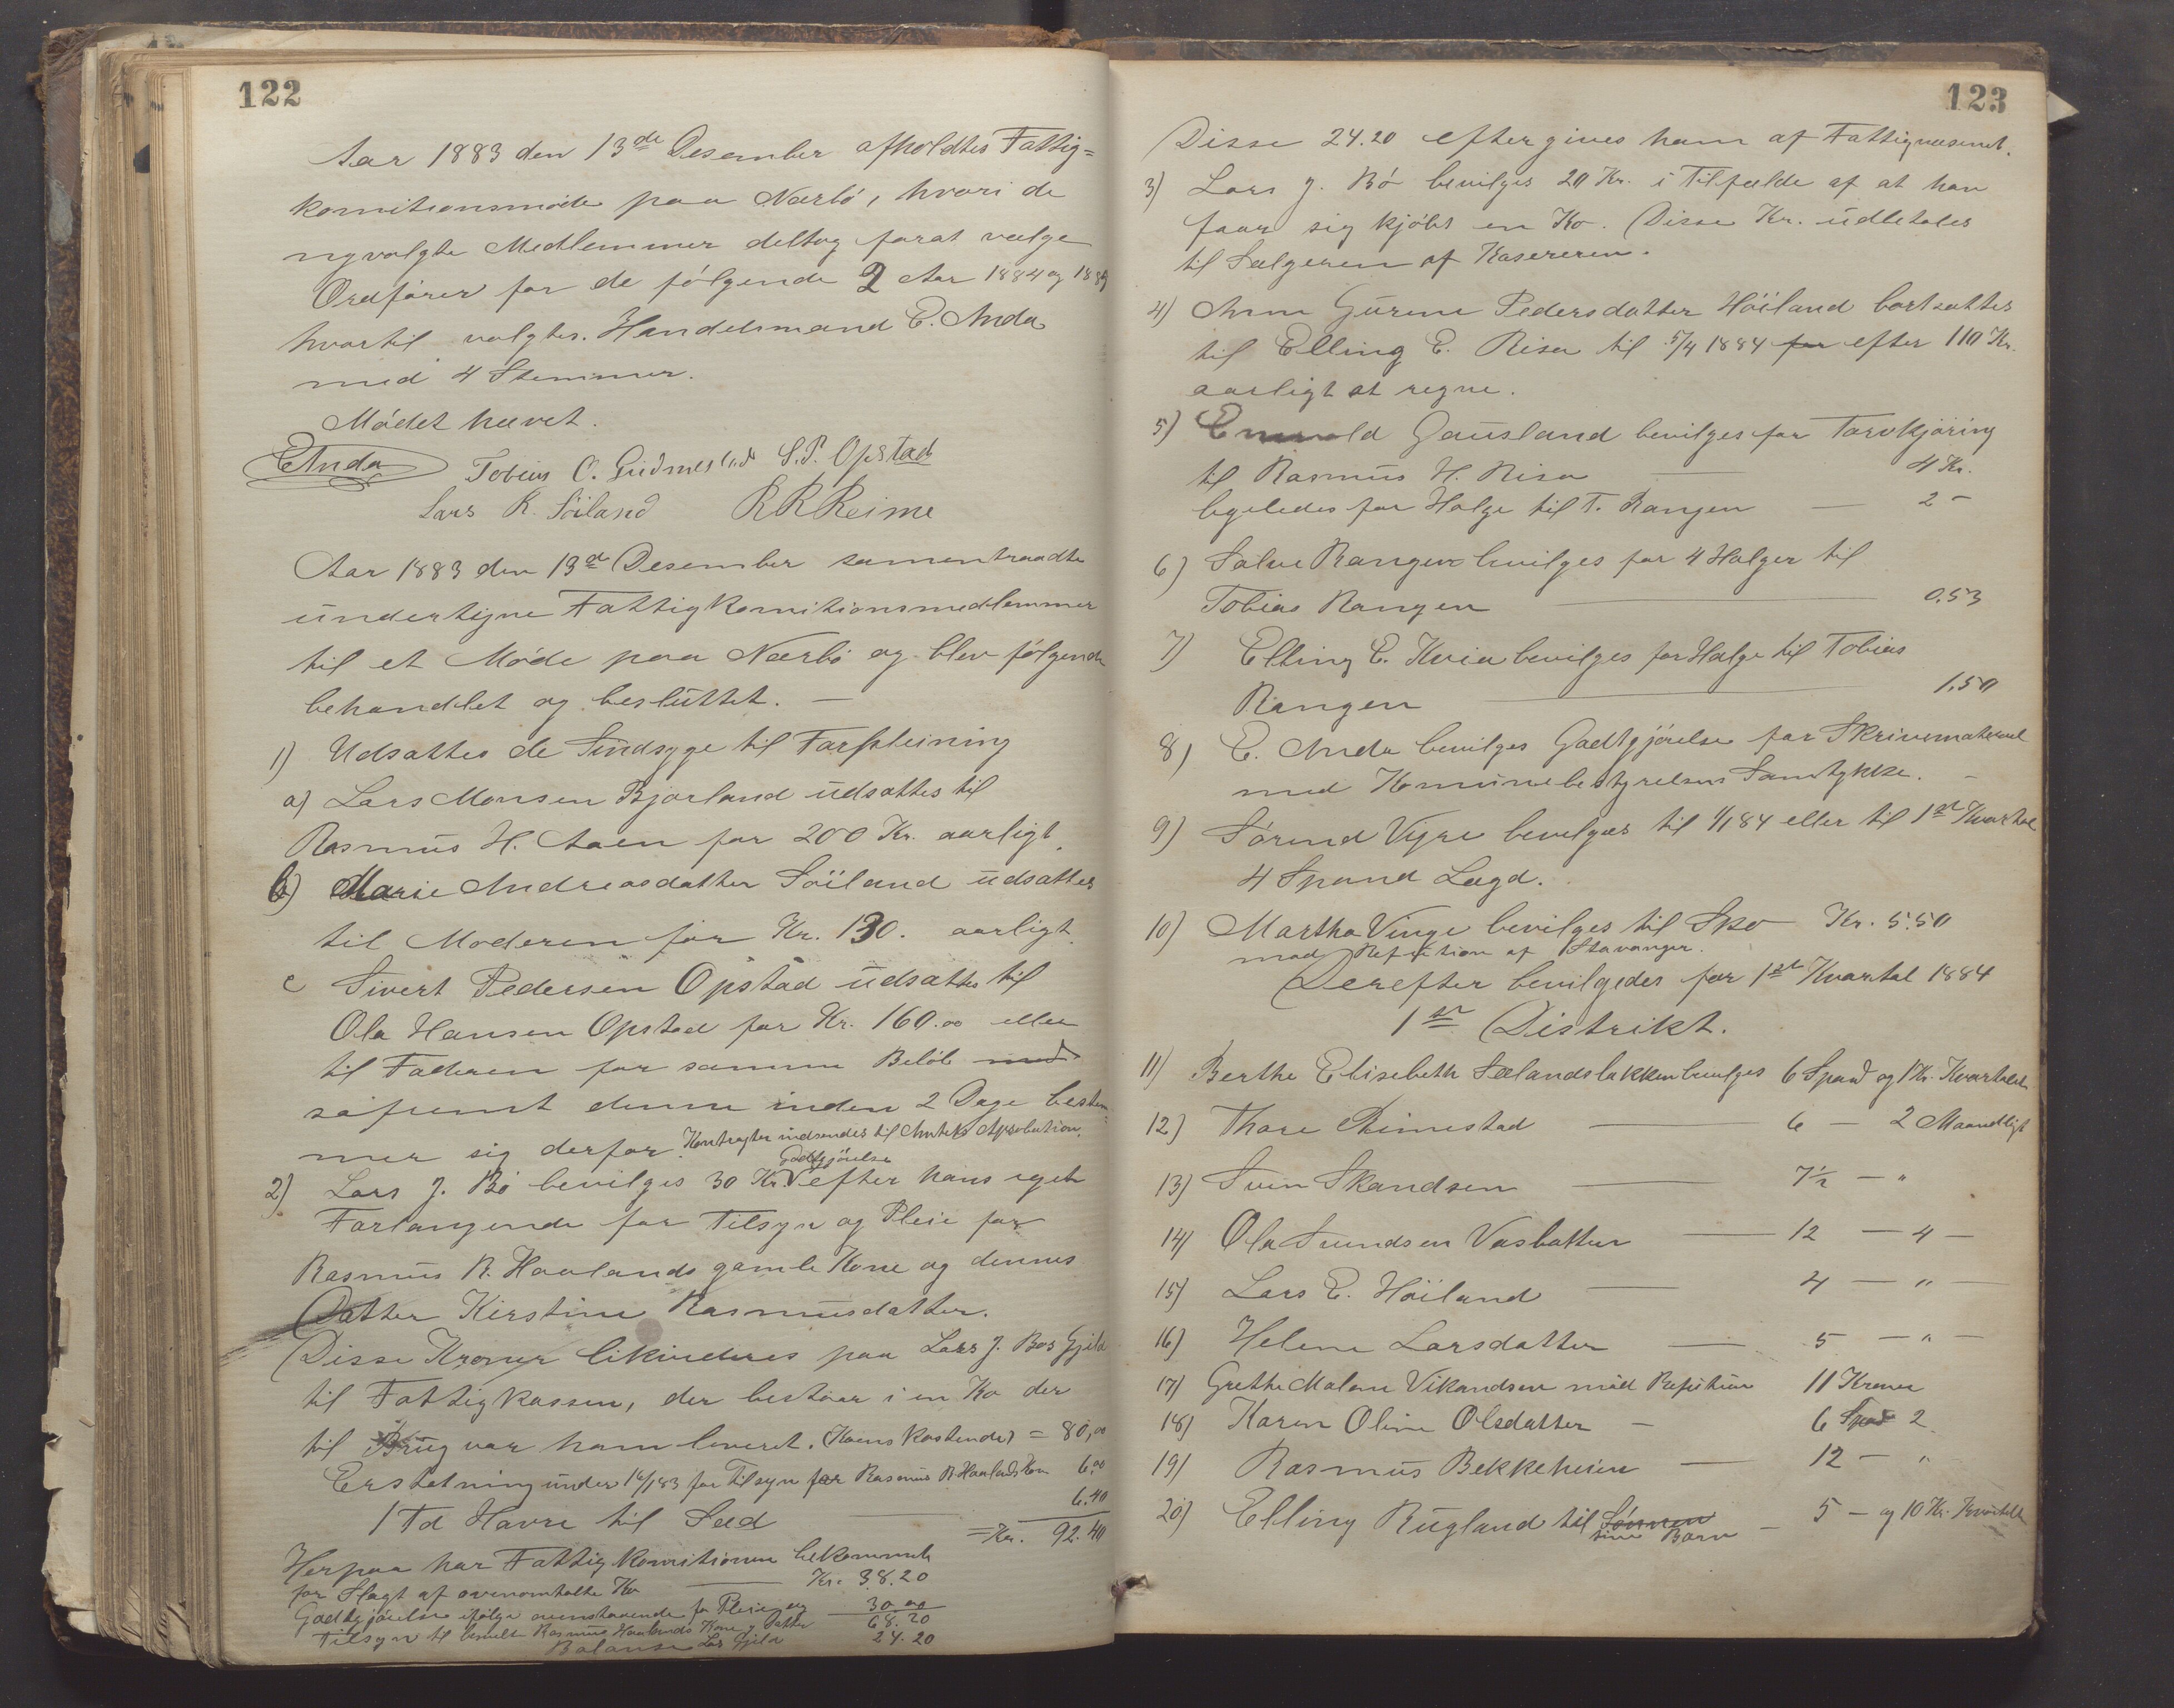 122
Aar 1883 den 13de Desember afholdtes Fattig=
komitionsmöde paa Nærbö, hvori de
nyvalgte Medlemmer deltog forat vælge
Ordförer for de fölgende 2 Aar 1884 og 1885
hvortil valgtes. Handelsmand E. Anda
med 4 Stemmer.
Mödet hævet.
E Anda Tobias O. Gudmestad S. P. Opstad
Lars R. Söiland R R Reime
Aar 1883 den 13de Desember samentraadte
undertegne Fattigkomitionsmedlemmer
til et Möde paa Nærbö og blev fölgende
behandlet og besluttet. —
1) Udsattes de Sindsyge til Forpleining
a) Lars Monsen Bjorland udsattes til
Rasmus H. Aaen for 200 Kr. aarligt.
b) Marie Andreasdatter Söiland udsattes
til Moderen for Kr. 130. aarligt.
c Sivert Pedersen Opstad udsattes til
Ola Hansen Opstad for Kr. 160.00 eller
til Faderen for samme Belöb med
såfremt denne inden 2 Dage bestem=
mer sig derfor. Kontragter indsendes til Amtets Aprobation.
Godtgjörelse
2) Lars J. Bö bevilges 30 Kr. efter hans eget
Forlangende for Tilsyn og Pleie for
Rasmus R. Haalands gamle Kone og dennes
Datter Kirstine Rasmusdatter.
Disse Kroner likvideres paa Lars J. Bös Gjeld
til Fattigkassen, der bestaar i en Ko der
til Brug var ham leveret. (Koens Kostende) = 80,00
Erstatning under 16/1 83 for Tilsyn for Rasmus R. Haalands Kone 6.00
1 Td Havre til Sæd 6.40
= Kr. 92.40
Herpaa har Fattigkomitionen bekommet
for Slagt af ovenomtalte Ko — Kr. 38.20
Godtgjörelse ifölge ovenstaaende for Pleie og 30.00
Tilsyn til Rasmus Haalands Kone og Datter 68.20
Balanse Lars Gjeld 24.20
123
Disse 24.20 eftergives ham af Fattigvæsenet.
3) Lars J. Bö bevilges 20 Kr. i Tilfælde af at han
faar sig kjöbt en Ko. Disse Kr. udbetales
til Sælgeren af Kasereren.
4) Ann Gurine Pedersdatter Höiland bortsattes
til Elling E. Risa til 5/4 1884 for efter 110 Kr.
aarligt at regne.
5) Enevald Gausland bevilges for Torvkjöring
til Rasmus H. Risa — 4 Kr.
ligeledes for Halge til T. Rangen — 2 -
6) Salve Rangen bevilges for 4 Halger til
Tobias Rangen — 0.53
7) Elling E. Kvia bevilges for Halge til Tobias
Rangen — 1.50
8) E. Anda bevilges Godtgjörelse for Skrivematerial
med Komunebestyrelsens Samtykke. -
9) Sörend Vigre bevilges til 1/1 84 eller til 1ste Kvartal
4 Spand Lagd.
10) Martha Vinge bevilges til Sko Kr. 5.50
mod Refution af Stavanger.
Derefter bevilgedes for 1ste Kvartal 1884
1ste Distrikt.
11) Berthe Elisebeth Sælandsbakken bevilges 6 Spand og 1 Kr. Kvartalet
12) Thore Rimestad — 6 — 2 Maandligt
13) Sven Skandsen — 7½ — "
14) Ola Svendsen Vasbotten — 12 — 4 —
15) Lars E. Höiland — 4 — " —
16) Helene Larsdatter — 5 — " —
17) Grethe Malene Vikandsen mod Refution 11 Kroner
18) Karen Oline Olsdatter — 6 Spand 2
19) Rasmus Bekkeheien — 12 — "
20) Elling Rugland til Sönnen — 5 — og 10 Kr. Kvartalet
sine Barn